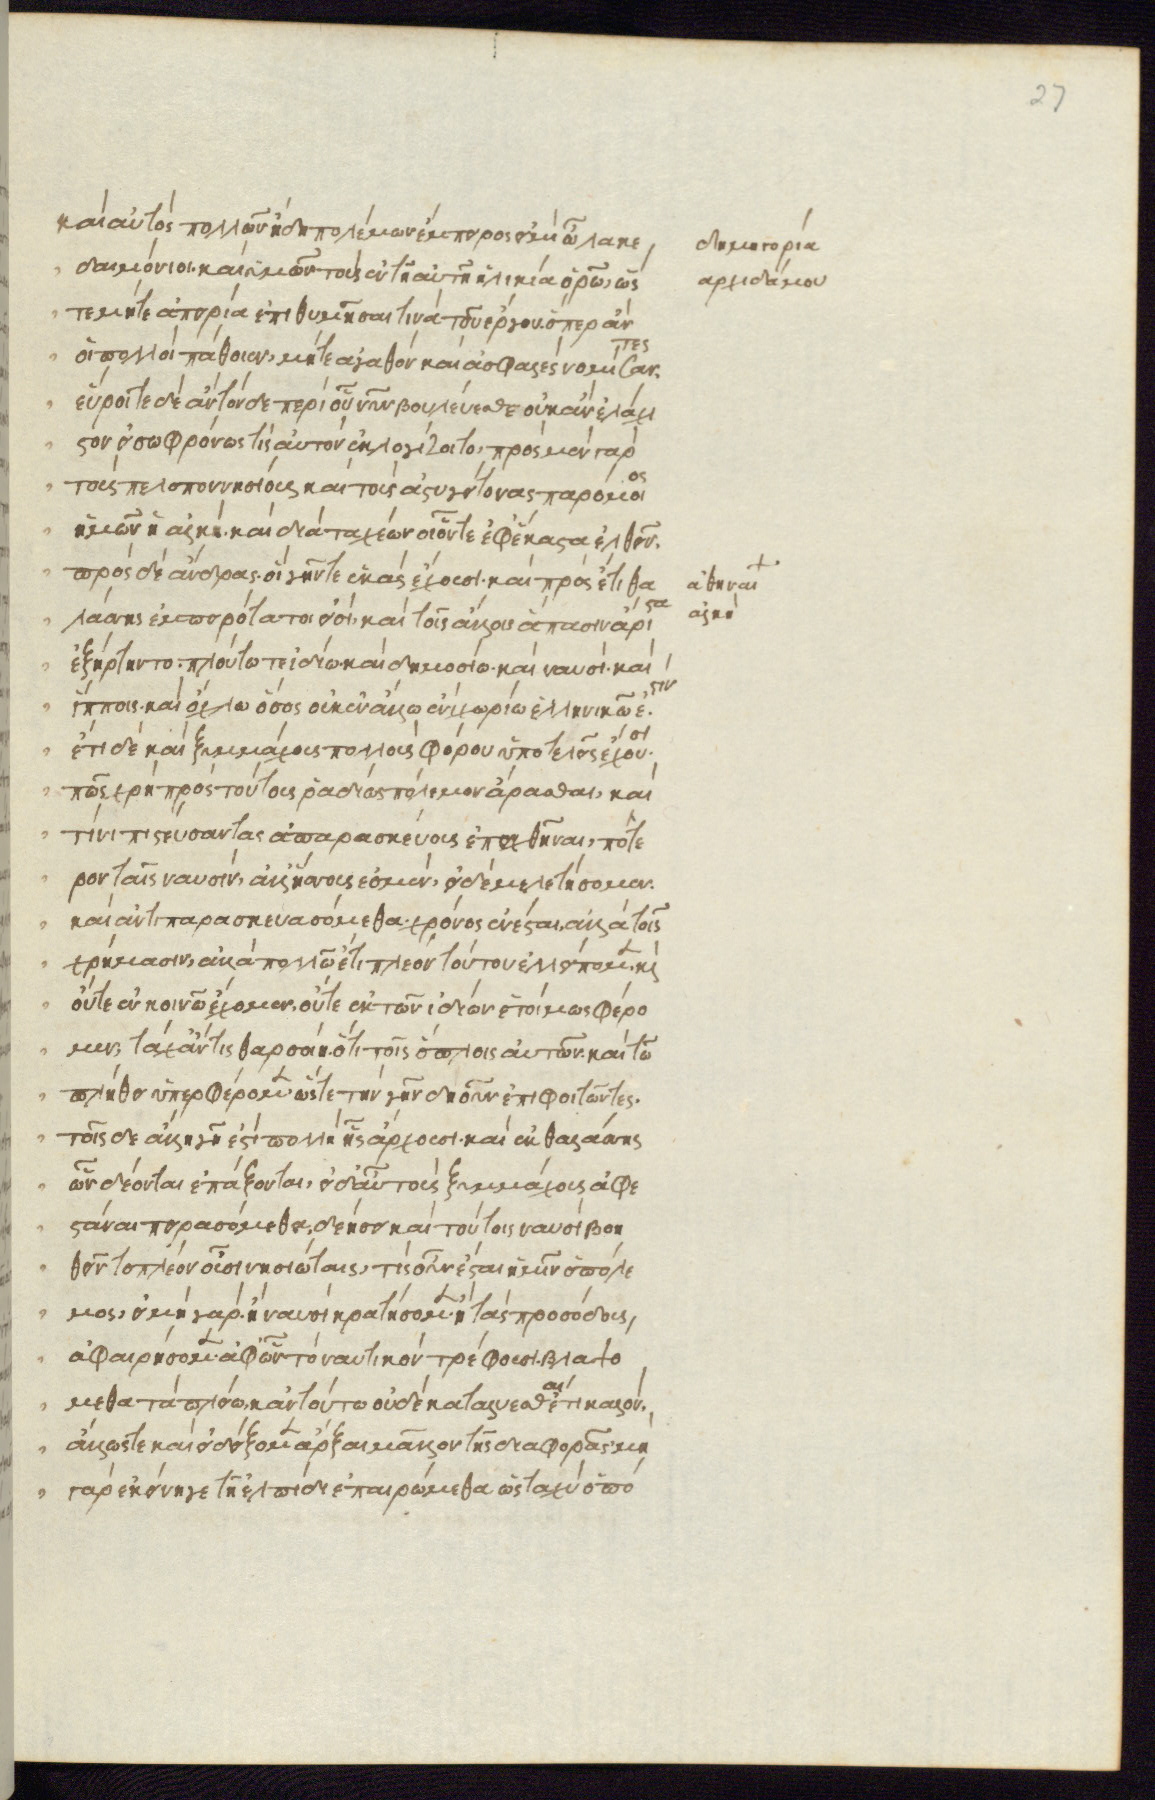 27
καὶ αὐτὸς πολλῶν ἤδη πολέμων ἔμπειρός εἰμι ὦ λακε
δαιμόνιοι· καὶ ὑμῶν τοὺς ἐν τῇ αὐτῇ ἡλικία ὁρῶ, ὥς
τε μήτε ἀπειρία ἐπιθυμῆσαι τινὰ τοῦ ἔργου. ὅπερ ἂν
οἱ πολλοὶ πάθοιεν, μήτε ἀγαθὸν καὶ ἀσφαλὲς νομίσαντες.
εὕροιτε δὲ ἂν τόνδε περὶ οὗ νῦν βουλεύεσθε οὐκ ἂν ἐλάχι
στον εἰ σωφρόνως τίς αὐτὸν ἐκλογίζοιτο, πρὸς μὲν γὰρ
τοὺς πελοποννησίους καὶ τοὺς ἀστυγείτονας παρόμοιος
ἡμῶν ἡ ἀλκή. καὶ διὰ ταχέων οἷόν τε ἐφ' ἕκαστα ἐλθεῖν.
πρὸς δὲ ἄνδρας. οἳ γῆν τε ἑκὰς ἔχουσι. καὶ πρὸς ἔτι θα
λάσσης ἐμπειρότατοι εἰσὶ, καὶ τοῖς ἄλλοις ἅπασιν ἄριστα
ἐξήρτηντο. πλούτω τε ἰδίω καὶ δημοσίω. καὶ ναυσὶ. καὶ
ἵπποις. καὶ ὄχλω ὅσος οὐκ ἐν ἄλλω ἑνὶ χωρίω ἑλληνικῶ ἐστιν.
ἔτι δὲ καὶ ξυμμάχους πολλοὺς φόρου ὑποτελεῖς ἔχουσι.
πῶς χρὴ πρὸς τούτους ῥαδίως πόλεμον ἄρασθαι, καὶ
τίνι πιστεύσαντας ἀπαρασκεύους ἐπειχθῆναι, πότε
ρον ταῖς ναυσὶν, ἀλλ' ἥσσους ἐσμὲν, εἰ δὲ μελετήσομεν.
καὶ ἀντιπαρασκευασόμεθα. χρόνος ἐνέσται, ἀλλὰ τοῖς
χρήμασιν, ἀλλὰ πολλῶ ἔτι πλέον τούτου ἐλλείπομεν. καὶ
οὔτε ἐν κοινῶ ἔχομεν, οὔτε ἐκ τῶν ἰδίων ἑτοίμως φέρο
μεν, τάχ' ἄν τις θαρσοίη. ὅτι τοῖς ὅπλοις αὐτῶν. καὶ τῶ
πλήθει ὑπερφέρομεν. ὥστε τὴν γῆν δηοῦν ἐπιφοιτῶντες.
τοῖς δε ἄλλη γῆ ἐστὶ πολλὴ ἧς ἄρχουσι. καὶ ἐκ θαλάσσης
ὧν δέονται ἐπάξονται, εἰ δ' αὖ τοὺς ξυμμάχους ἀφι
στάναι πειρασόμεθα, δεήσει καὶ τούτοις ναυσὶ βοη
θεῖν τὸ πλέον οὖσι νησιώταις, τίς οὖν ἔσται ἡμῶν ὁ πόλε
μος, εἰ μὴ γὰρ. ἢ ναυσὶ κρατήσομεν. ἢ τὰς προσόδους,
ἀφαιρήσομεν ἀφ' ὧν τὸ ναυτικὸν τρέφουσι. βλαψό
μεθα τὰ πλείω. κἀν τούτω οὐδὲ καταλύεσθαι ἔτι καλὸν,
ἄλλως τε καὶ εἰ δόξομεν ἄρξαι μᾶλλον τῆς διαφορᾶς, μὴ
γὰρ ἐκείνη γε τῇ ἐλπίδι ἐπαιρώμεθα ὡς ταχὺ ὁ πό
δημηγορία
ἀρχιδάμου
ἀθηναί
ἀλκή